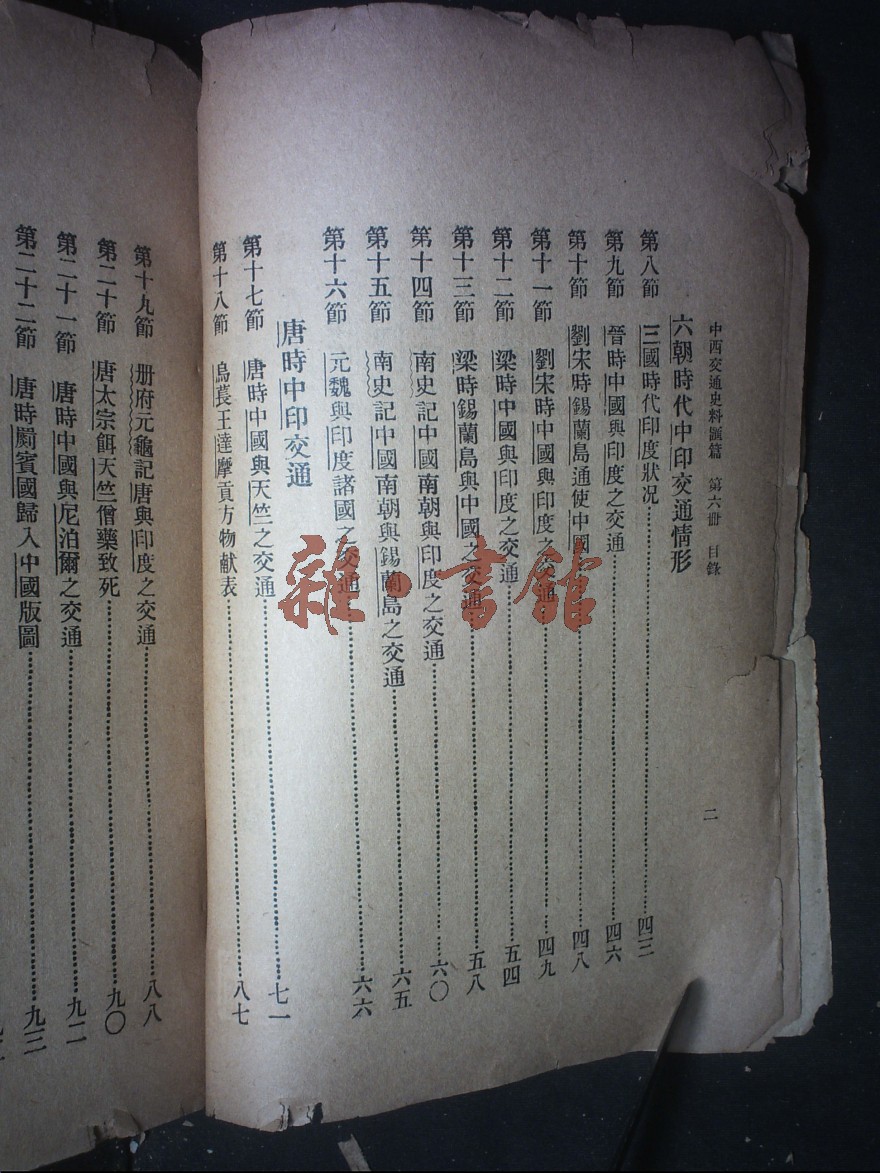 中西交通史料匯篇 第六冊 目錄
二
六朝時代中印交通情形
第八節 三國時代印度狀况……四三
第九節 晉時中國與印度之交通……四六
第十節 劉宋時錫蘭島通使中國……四八
第十一節 劉宋時中國與印度之交通……四九
第十二節 梁時中國與印度之交通……五四
第十三節 梁時錫蘭島與中國之交通……五八
第十四節 南史記中國南朝與印度之交通……六〇
第十五節 南史記中國南朝與錫蘭島之交通……六五
第十六節 元魏與印度諸國之交通……六六
唐時中印交通
第十七節 唐時中國與天竺之交通……七一
第十八節 烏萇王達摩貢方物献表……八七
第十九節 册府元龜記唐與印度之交通……八八
第二十節 唐太宗餌天竺僧藥致死……九〇
第二十一節 唐時中國與尼泊爾之交通……九二
第二十二節 唐時罽賓國歸入中國版圖……九三
雜·書館